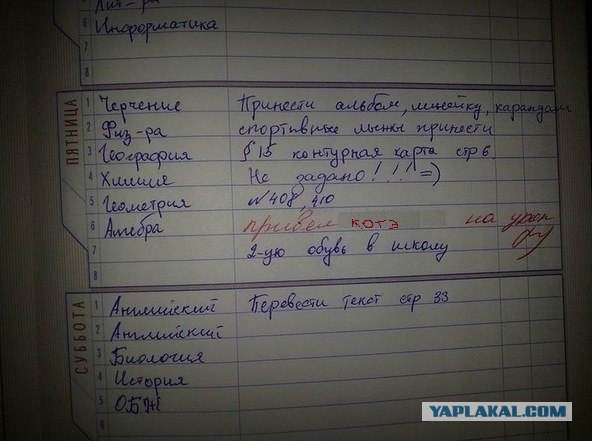 Лит-ра
6 Информатика
7
8
ПЯТНИЦА
1 Черчение Принести альбом, линейку, карандаш
2 Физ-ра спортивные лыжы принести
3 География § 15 контурная карта стр 6.
4 Химия Не задано!!!! =)
5 Геометрия № 408, 410
6 Алгебра привел котэ на урок
7 2-ую обувь в школу
8
СУББОТА
1 Английский Перевести текст стр 33
2 Английский
3 Биология
4 История
5 ОБЖ
6
YAPLAKAL.COM